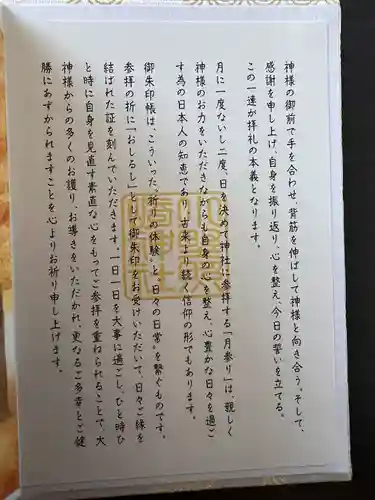 神様の御前で手を合わせ、背筋を伸ばして神様と向き合う。そして、
感謝を申し上げ、自身を振り返り、心を整え、今日の誓いを立てる。
この一連が拝礼の本義となります。
月に一度ないし二度、日を決めて神社に参拝する「月参り」は、親しく
神様のお力をいただきながらも自身の心を整え、心豊かな日々を過ご
す為の日本人の知恵であり、古来より続く信仰の形でもあります。
御朱印帳は、こういった〝祈りの体験〟と〝日々の日常〟を繋ぐものです。
参拝の折に「おしるし」として御朱印をお受けいただいて、日々ご縁を
結ばれた証を刻んでいただきます。一日一日を大事に過ごし、ひと時ひ
と時に自身を見直す素直な心をもってご参拝を重ねられることで、大
神様からの多くのお護り、お導きをいただかれ、更なるご多幸とご健
勝にあずかられますことを心よりお祈り申し上げます。